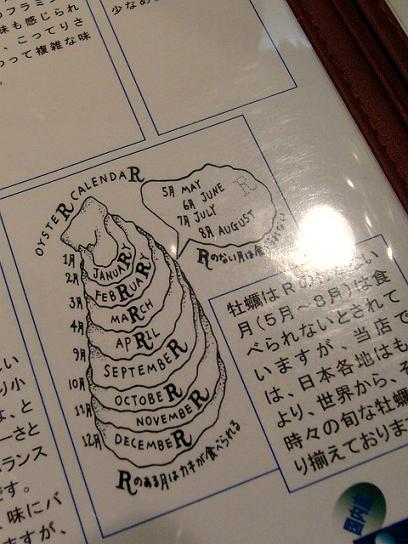 のフラミ
味も感じられ
、こってりさ
わって複雑な味
少なめ
OYSTER CALENDAR
5月 MAY
6月 JUNE
7月 JULY
8月 AUGUST
R
Rのない月は食べられない
1月 JANUARY
2月 FEBRUARY
3月 MARCH
4月 APRIL
9月 SEPTEMBER
10月 OCTOBER
11月 NOVEMBER
12月 DECEMBER
Rのある月はカキが食べられる
牡蠣はRの
月(5月~8月)は食
べられないとされて
いますが、当店で
は、日本各地はも
より、世界から、そ
時々の旬な牡蠣
り揃えておりま
しい
り小
よ、と
ーさと
ランス
です。
味にバ
ますが、
国内